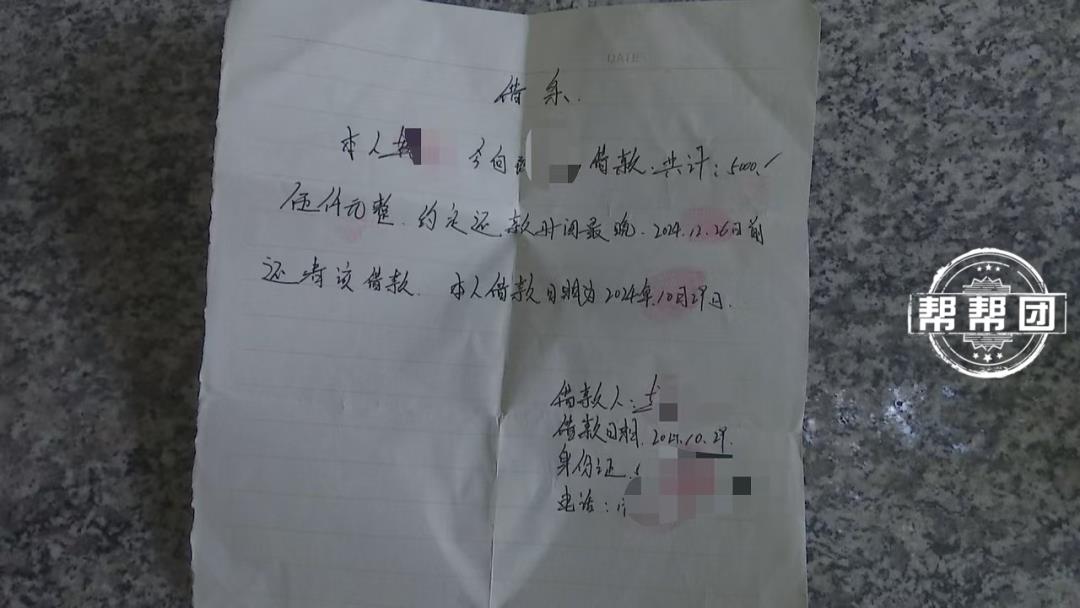 DATE
借条.
本人 今向 借款.共计:5000./
伍仟元整.约定还款时间最晚.2024.12.26日前
还清该借款. 本人借款日期为2024年10月29日.
借款人:
借款日期.2024.10.29.
身份证.
电话:
帮帮团